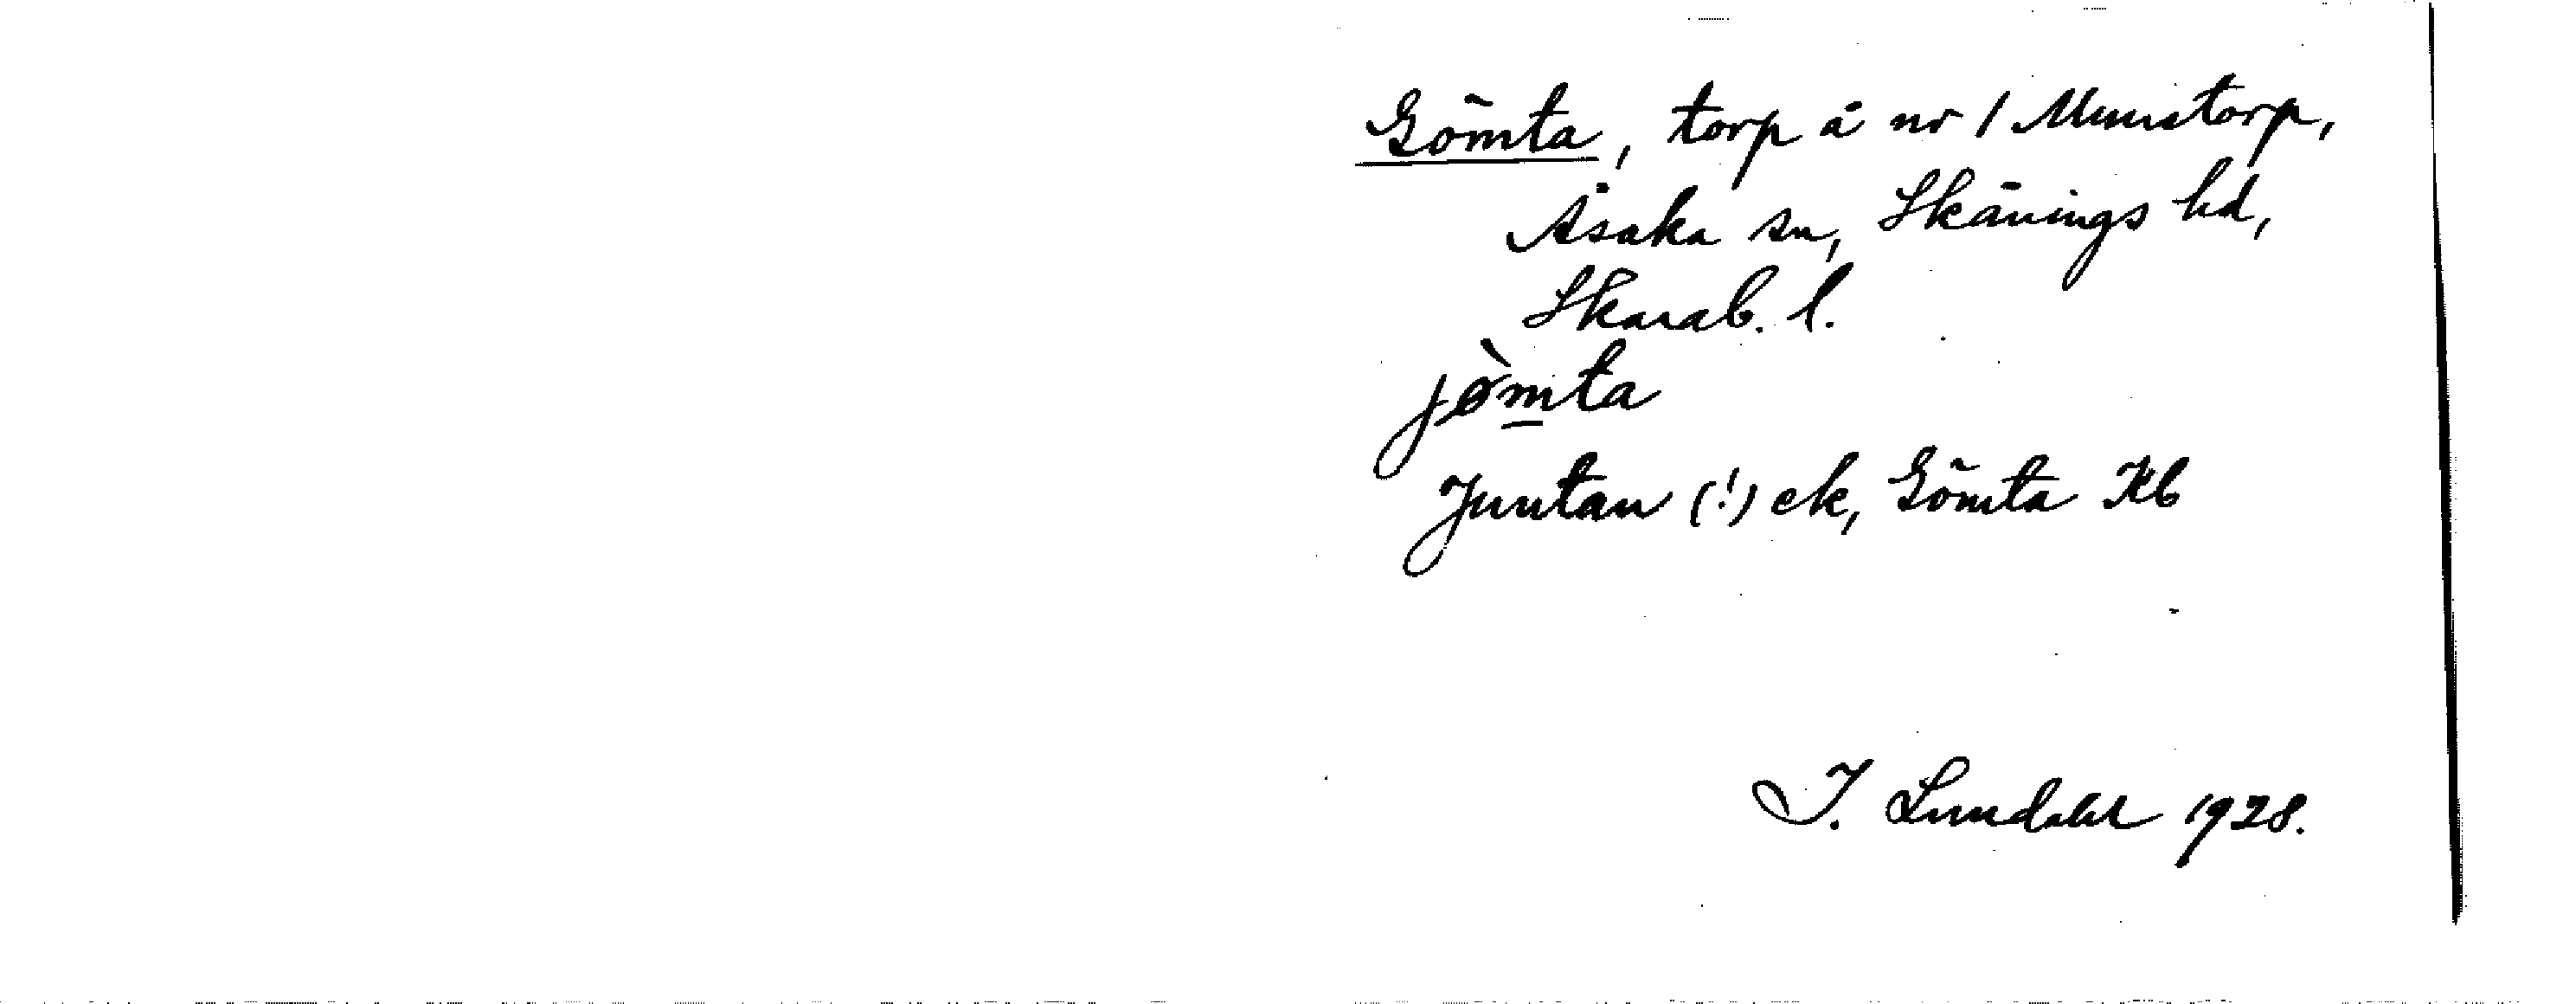 Gömta, torp å nr 1 Munstorp,
Åsaka sn, Skånings hd,
Skarab. l.
jòmta
Juntan (!) ek, Gömta Kb
I. Lundahl 1928.